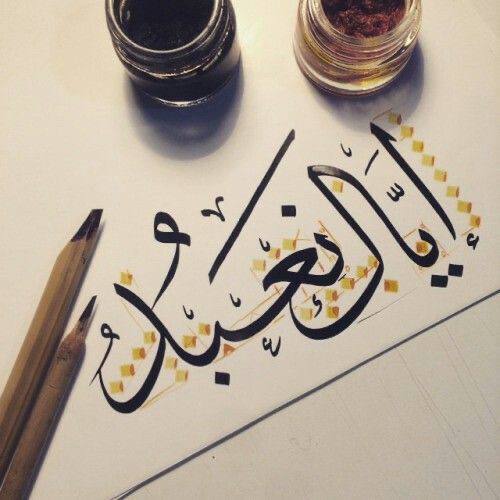 إيّاك نعبدُ